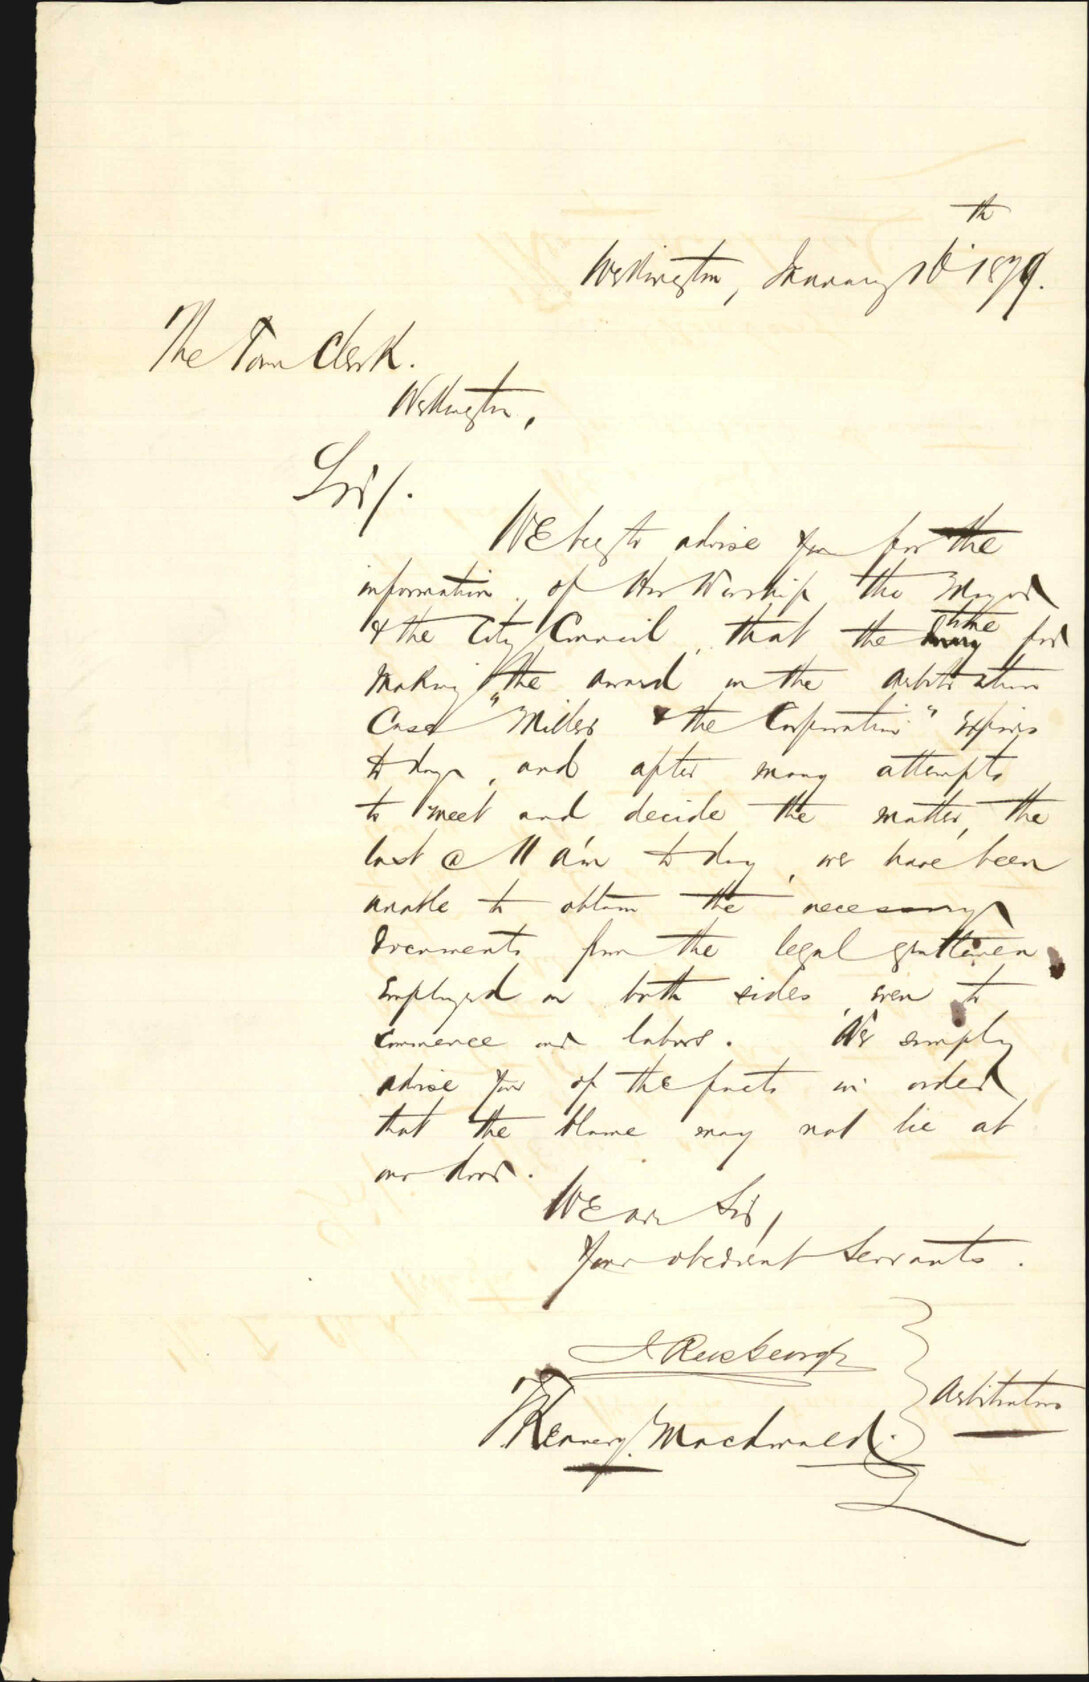 Wellington, January 10th 1879.
The Town Clerk.
Wellington,
Sir/.
We beg to advise you for the
information of His Worship the Mayor
& the City Council, that the time for
making the award in the arbitration
Case "Millers & the Corporation" expires
to day, and after many attempts
to meet and decide the matter, the
last @ 11 a.m to day, we have been
unable to obtain the necessary
documents from the legal gentlemen
employed on both sides, even to
commence our labors. We simply
advise you of the facts in order
that the blame may not lie at
our door.
We are Sir,
Your obedient Servants.
J Rees George
T Kennedy Macdonald.
Arbitrators